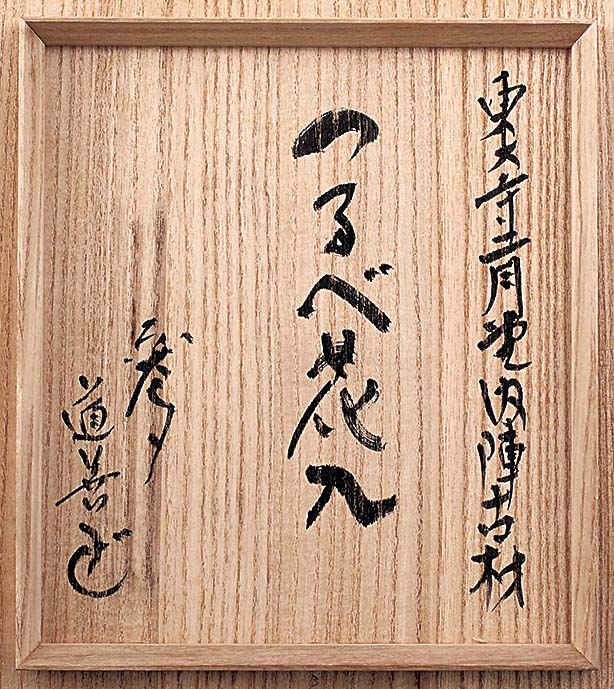 東大寺二月堂内陣古材
つるべ花入
道善造